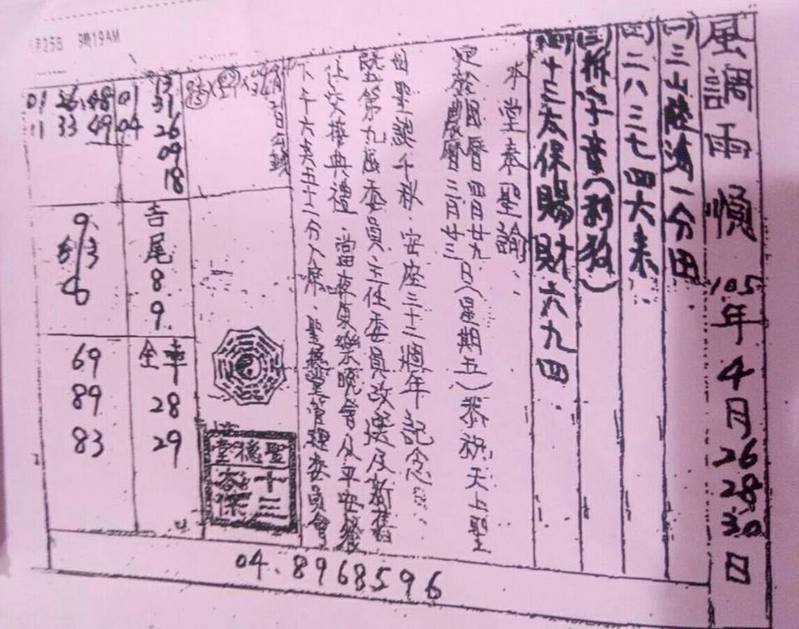 風調雨順 105年4月26 28 30日
㈠三山陸海一分田
㈡二八三七四六来
㈢拆字章(彩教)
㈣十三太保賜財六九四
本堂奉聖諭:
定於國曆四月廿九日(星期五)恭祝天上聖
農曆三月廿三
母聖誕千秋.安座三十二週年記念
暨第九屆委員主任委員改選及新舊
任交接典禮.當夜康樂晚會及平安餐
下午六点五十二分入席.聖德堂管理委員會
聖德堂
十三太保
13
31
26
09
18
01
04
48
49
26
33
01
11
吉尾
8
9
9
全車
28
29
69
89
83
04.8968596
月25日 9時19AM